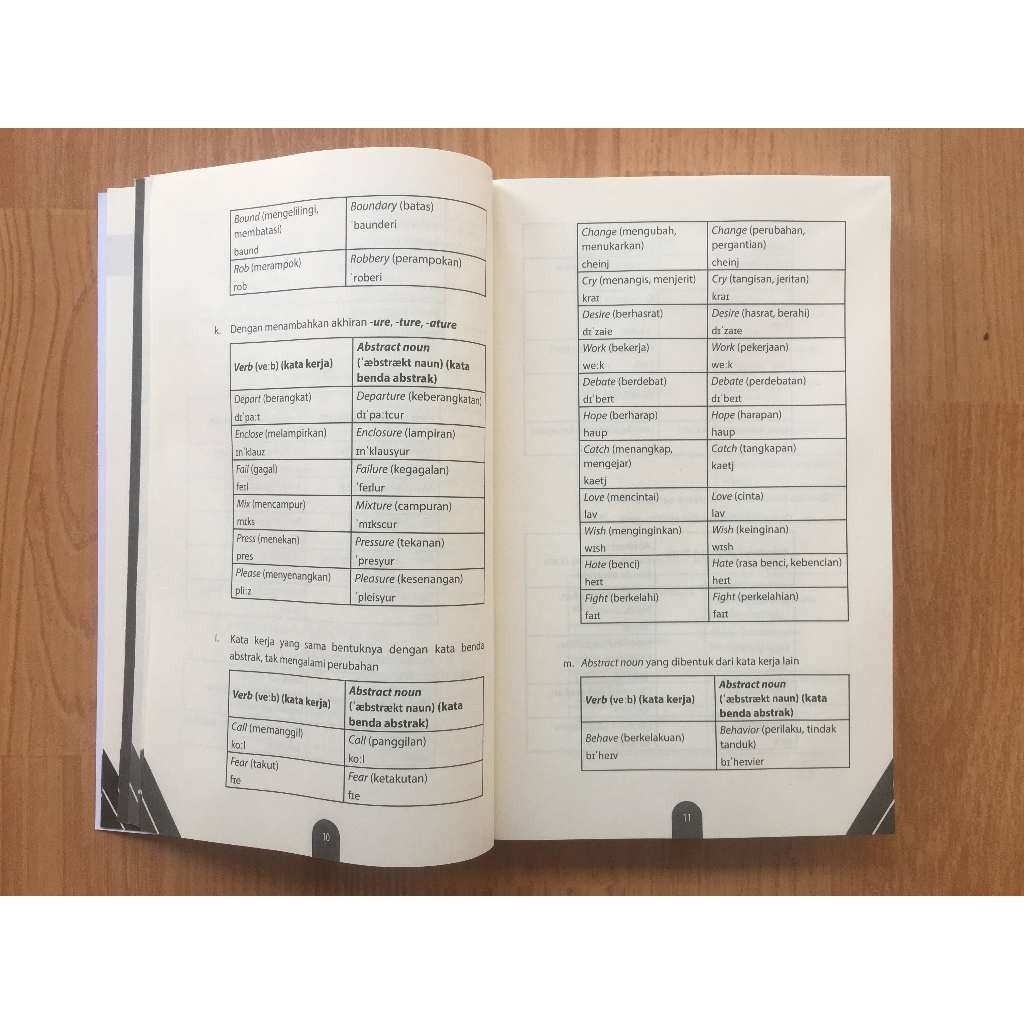 Bound (mengelilingi,
membatasi)
baund
Boundary (batas)
ˈbaunderi
Rob (merampok)
rob
Robbery (perampokan)
ˈroberi
k. Dengan menambahkan akhiran -ure, -ture, -ature
Verb (ve:b) (kata kerja)
Abstract noun
(ˈæbstrækt naun) (kata
benda abstrak)
Depart (berangkat)
dɪˈpa:t
Departure (keberangkatan)
dɪˈpa:tcur
Enclose (melampirkan)
ɪnˈklauz
Enclosure (lampiran)
ɪnˈklausyur
Fail (gagal)
feɪl
Failure (kegagalan)
ˈfeɪlur
Mix (mencampur)
mɪks
Mixture (campuran)
ˈmɪkscur
Press (menekan)
pres
Pressure (tekanan)
ˈpresyur
Please (menyenangkan)
pli:z
Pleasure (kesenangan)
ˈpleisyur
l. Kata kerja yang sama bentuknya dengan kata benda
abstrak, tak mengalami perubahan
Verb (ve:b) (kata kerja)
Abstract noun
(ˈæbstrækt naun) (kata
benda abstrak)
Call (memanggil)
ko:l
Call (panggilan)
ko:l
Fear (takut)
fɪe
Fear (ketakutan)
fɪe
10
Change (mengubah,
menukarkan)
cheinj
Change (perubahan,
pergantian)
cheinj
Cry (menangis, menjerit)
kraɪ
Cry (tangisan, jeritan)
kraɪ
Desire (berhasrat)
dɪˈzaie
Desire (hasrat, berahi)
dɪˈzaɪe
Work (bekerja)
we:k
Work (pekerjaan)
we:k
Debate (berdebat)
dɪˈbeɪt
Debate (perdebatan)
dɪˈbeɪt
Hope (berharap)
haup
Hope (harapan)
haup
Catch (menangkap,
mengejar)
kaetj
Catch (tangkapan)
kaetj
Love (mencintai)
lav
Love (cinta)
lav
Wish (menginginkan)
wɪsh
Wish (keinginan)
wɪsh
Hate (benci)
heɪt
Hate (rasa benci, kebencian)
heɪt
Fight (berkelahi)
faɪt
Fight (perkelahian)
faɪt
m. Abstract noun yang dibentuk dari kata kerja lain
Verb (ve:b) (kata kerja)
Abstract noun
(ˈæbstrækt naun) (kata
benda abstrak)
Behave (berkelakuan)
bɪˈheɪv
Behavior (perilaku, tindak
tanduk)
bɪˈheɪvier
11